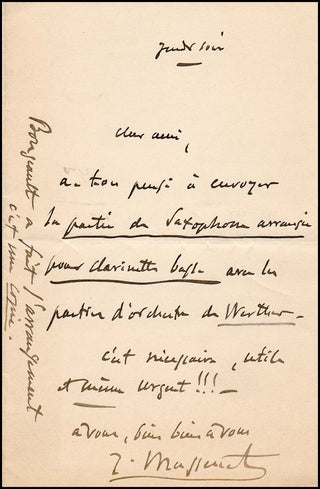 Jeudi soir
Cher ami,
a-t-on pensé à envoyer
la partie de Saxophone arrangée
pour clarinette basse avec les
parties d'orchestre de Werther -
c'est nécessaire, utile
et même urgent!!! -
à vous, bien bien à vous
J. Massenet
Bourgeault a fait l'arrangement
c'est une copie.